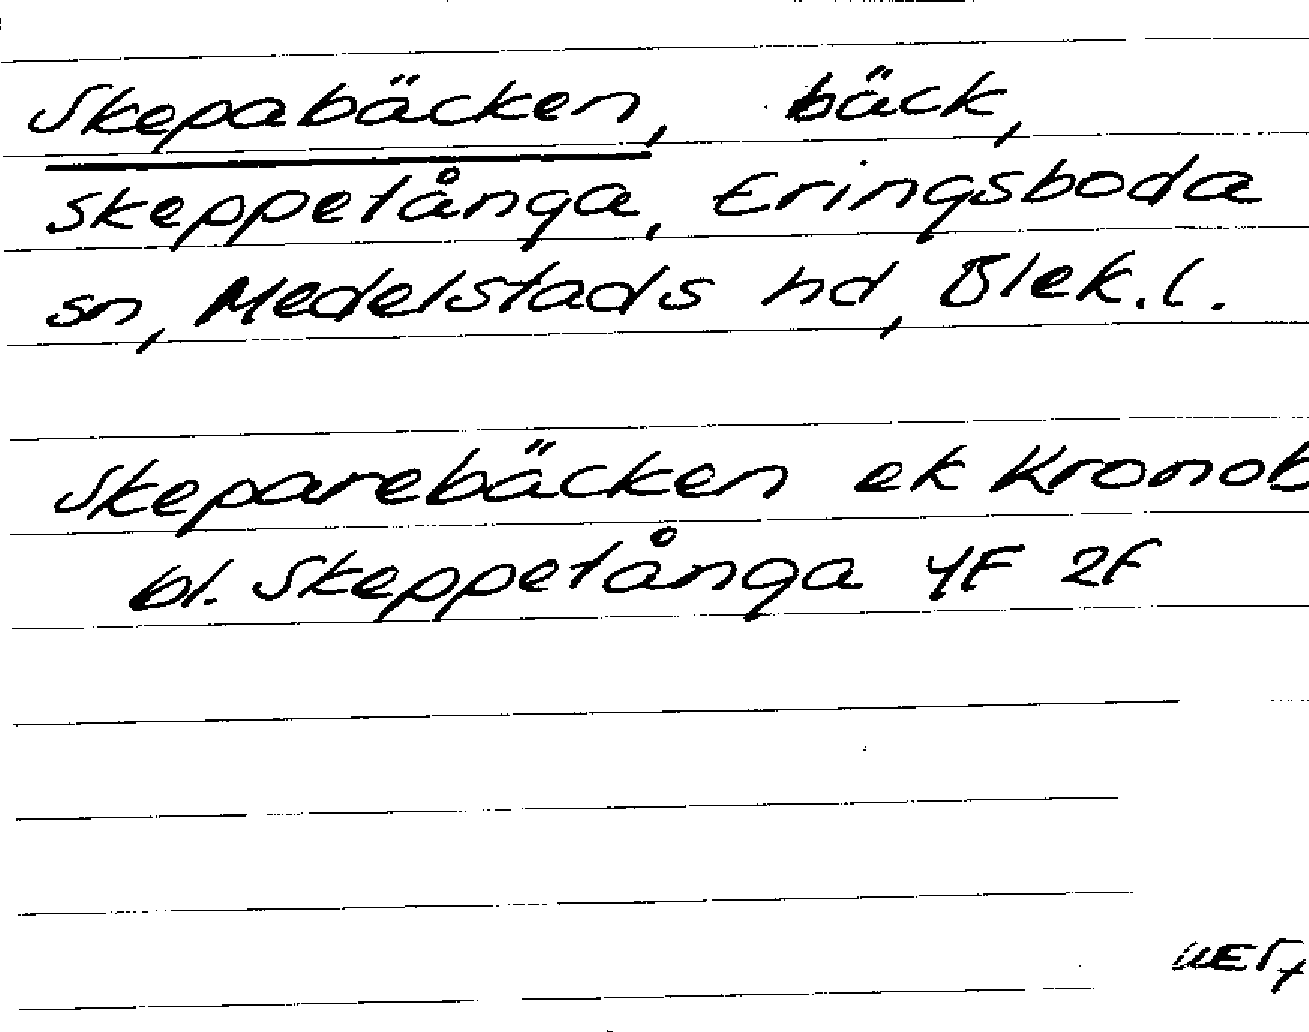 Skepabäcken, bäck,
Skeppetånga, Eringsboda
sn, Medelstads hd, Blek.l.
Skeparebäcken ek Kronob
bl. Skeppetånga 4F 2f